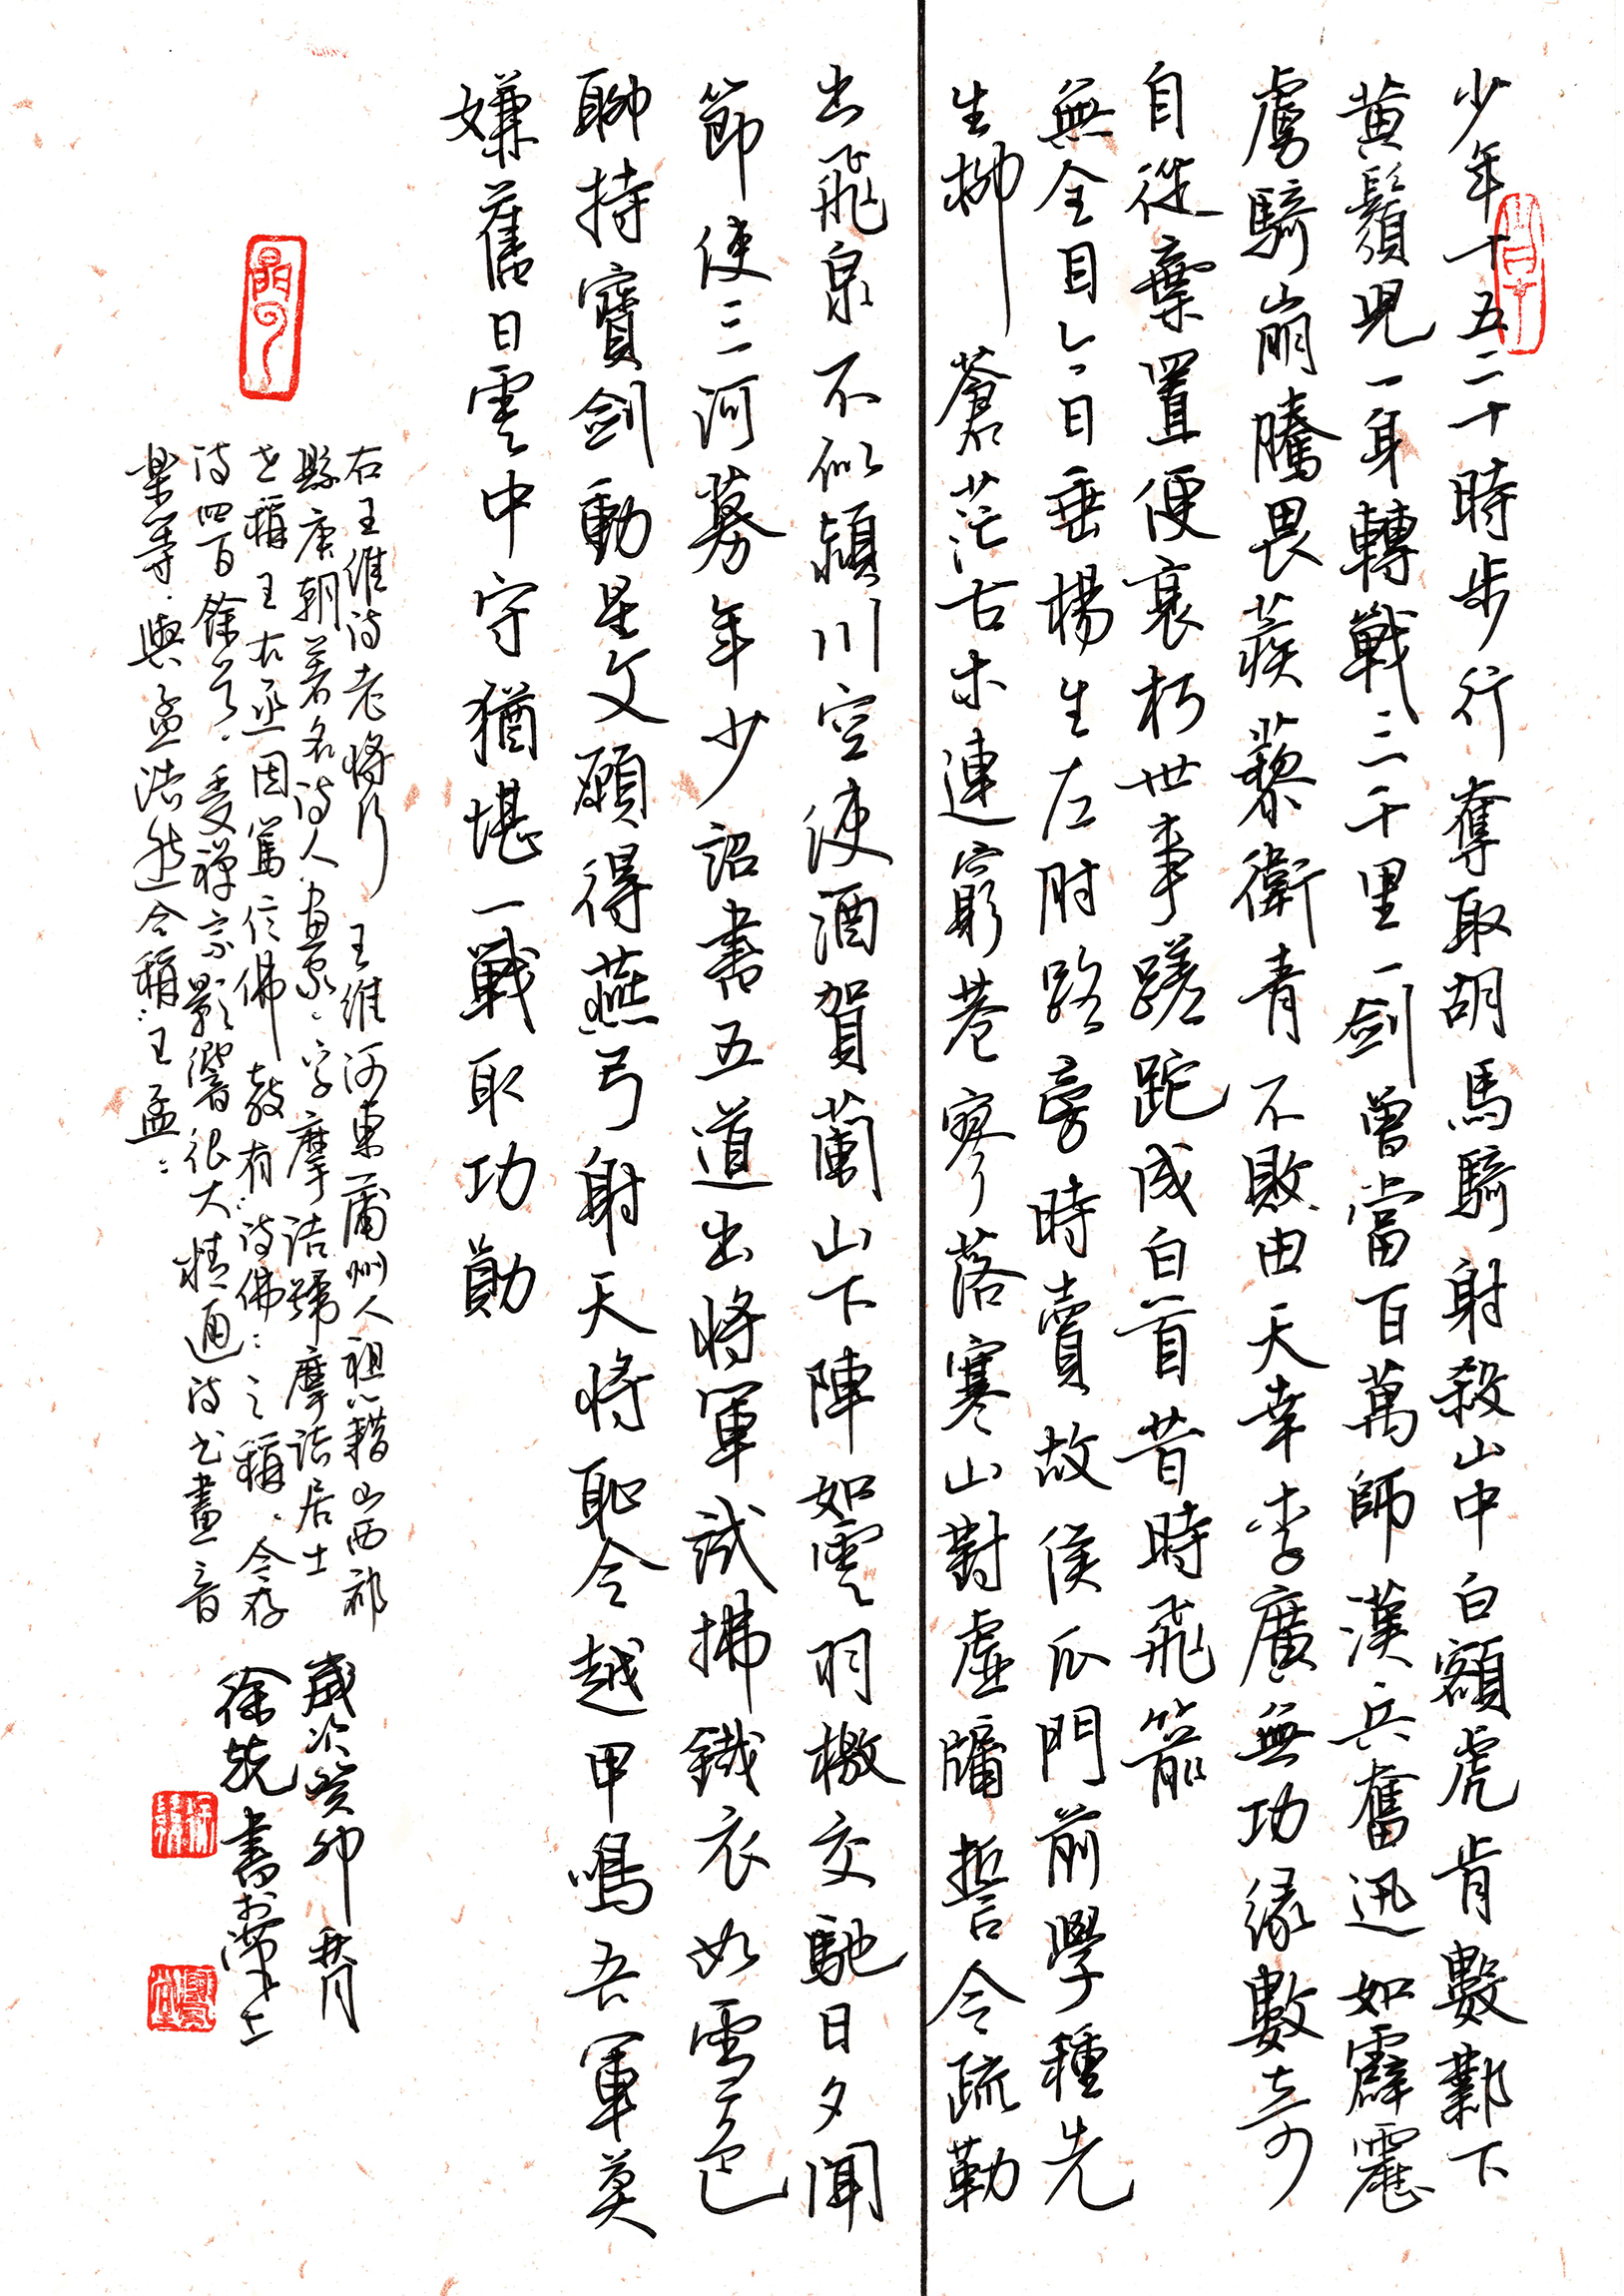 少年十五二十時步行奪取胡馬騎射殺山中白額虎肯數鄴下
黃鬚兒一身轉戰三千里一劍曾當百萬師漢兵奮迅如霹靂
虜騎崩騰畏蒺藜衛青不敗由天幸李廣無功緣數奇
自從棄置便衰朽世事蹉跎成白首昔時飛箭
無全目今日垂楊生左肘路旁時賣故侯瓜門前學種先
生柳蒼茫古木連窮巷寥落寒山對虛牖誓令疏勒
出飛泉不似潁川空使酒賀蘭山下陣如雲羽檄交馳日夕聞
節使三河募年少詔書五道出將軍試拂鐵衣如雪色
聊持寶劍動星文願得燕弓射天將恥令越甲鳴吾軍莫
嫌舊日雲中守猶堪一戰取功勛
右王維詩老將行 王維河東蒲州人祖籍山西祁
縣唐朝著名詩人畫家字摩詰號摩詰居士
世稱王右丞因篤信佛教有詩佛之稱今存
詩四百餘首受禪宗影響很大精通詩書畫音
樂等與孟浩然合稱王孟
歲次癸卯
徐 書於